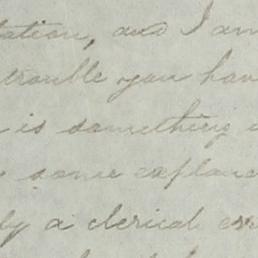 lation, and I am
trouble you have
is something
some explana
ly a clerical er